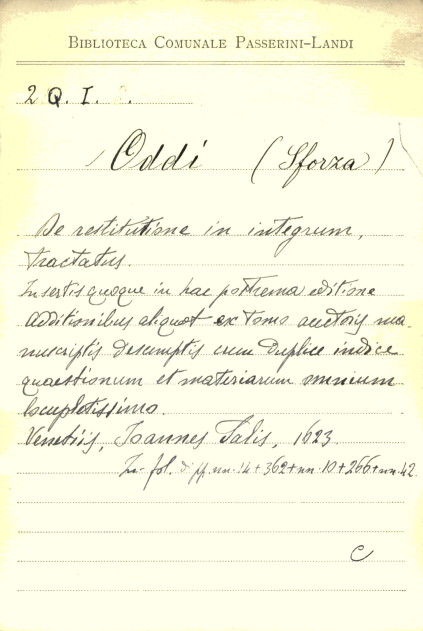 BIBLIOTECA COMUNALE PASSERINI-LANDI
2 Q. I. .
Oddi (Sforza)
De restitutione in integrum,
tractatus.
Insertis quoque in hac postrema editione
additionibus aliquot ex tomo auctoris ma-
nuscriptis desumptis cum duplice indice
quaestionum et materiarum omnium
locupletissimo.
Venetiis, Joannes Salis, 1623.
In-fol. di pp. nn. 14 + 362 + nn. 10 + 266 + nn. 42.
C